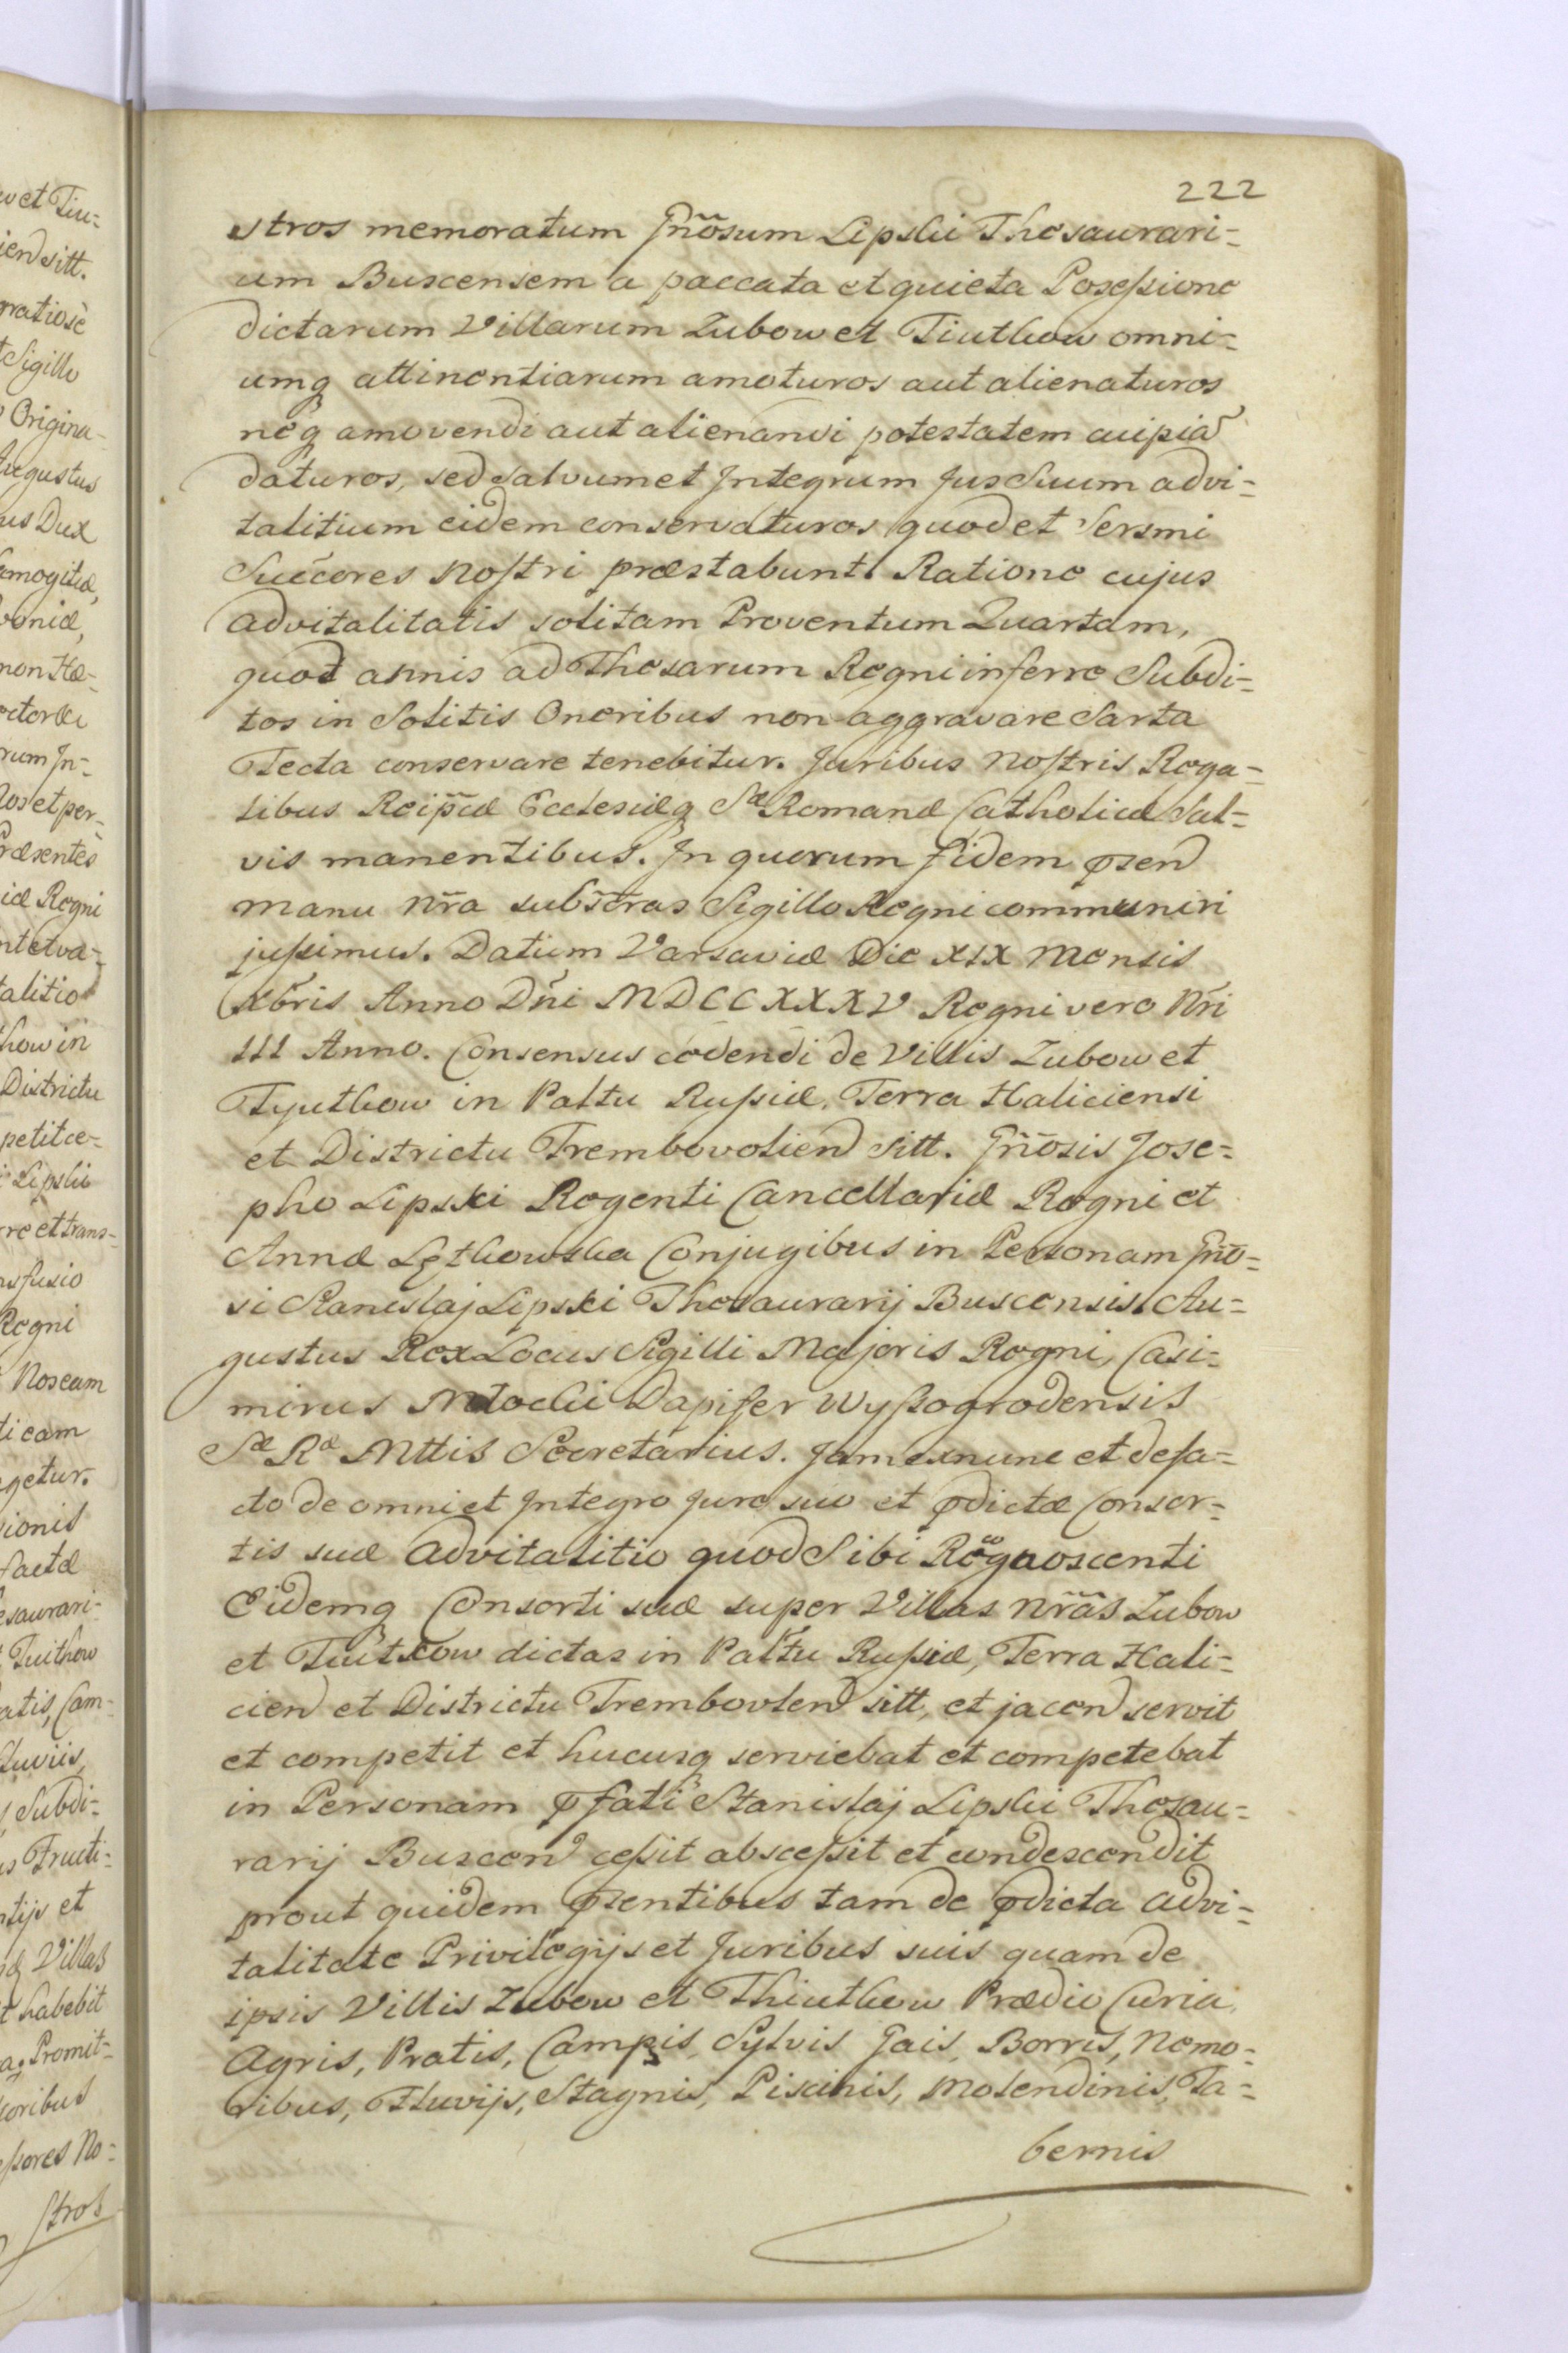 222
stros memoratum Gñosum Lipski Thesaurari=
um Buscensem a paccata et quieta Possessione
dictarum Villarum Zubow et Tiutkow omni=
umq attinentiarum amoturos aut alienaturos
neq amovendi aut alienandi potestatem cuipiã
daturos, sed salvum et Integrum Jus Suum advi=
talitium eidem conservaturos quod et Sersmi
Succores nostri præstabunt. Ratione cujus
advitalitatis solitam Proventum Quartam,
quod annis ad Thesarum Regni inferre Subdi=
tos in Solitis Oneribus non aggravare Sarta
Tecta conservare tenebitur. Juribus nostris Rega=
libus Reipũæ Ecclesiæq Sæ Romanæ Catholicæ Sal=
vis manentibus. In quorum fidem p̄sen
manu nr̃a subscr̃as Sigillo Regni communiri
jussimus. Datum Varsaviæ Die XIX Mensis
Xbris Anno Dñi MDCCXXXV Regni vero Nr̃i
III Anno. Consensus cedendi de Villis Zubow et
Tyutkow in Paltu Russiæ, Terra Haliciensi
et Districtu Trembovolien sitt. Gñosis Jose=
pho Lipski Regenti Cancellariæ Regni et
Annæ Lętkowska Conjugibus in Personam Gño=
si Stanislaj Lipski Thesaurarij Buscensis. Au=
gustus Rex Locus Sigilli Majoris Regni, Casi=
mirus Młocki Dapifer Wyssogrodensis
Sæ Ræ Mttis Secretarius. Jam exnunc et defa=
cto de omni et Integro Jure suo et p̄dictæ Consor=
tis suæ advitalitio quod Sibi Recognoscenti
Eidemq Consorti suæ super Villas nr̃as Zubow
et Tiutkow dictas in Paltu Russiæ, Terra Hali=
cien et Districtu Trembovlen sitt, et jacen servit
et competit et hucusq serviebat et competebat
in Personam p̄fati Stanislaj Lipski Thesau=
rarij Buscen cessit abscessit et condescendit
prout quidem p̄sentibus tam de p̄dicta advi=
talitate Privilegijs et Juribus suis quam de
ipsis Villis Zubow et Thiutkow Prædio Curia
Agris, Pratis, Campis, Sylvis Gais, Borris, Nemo=
ribus, Fluvijs, Stagnis, Piscinis, Molendinis, Ta=
bernis